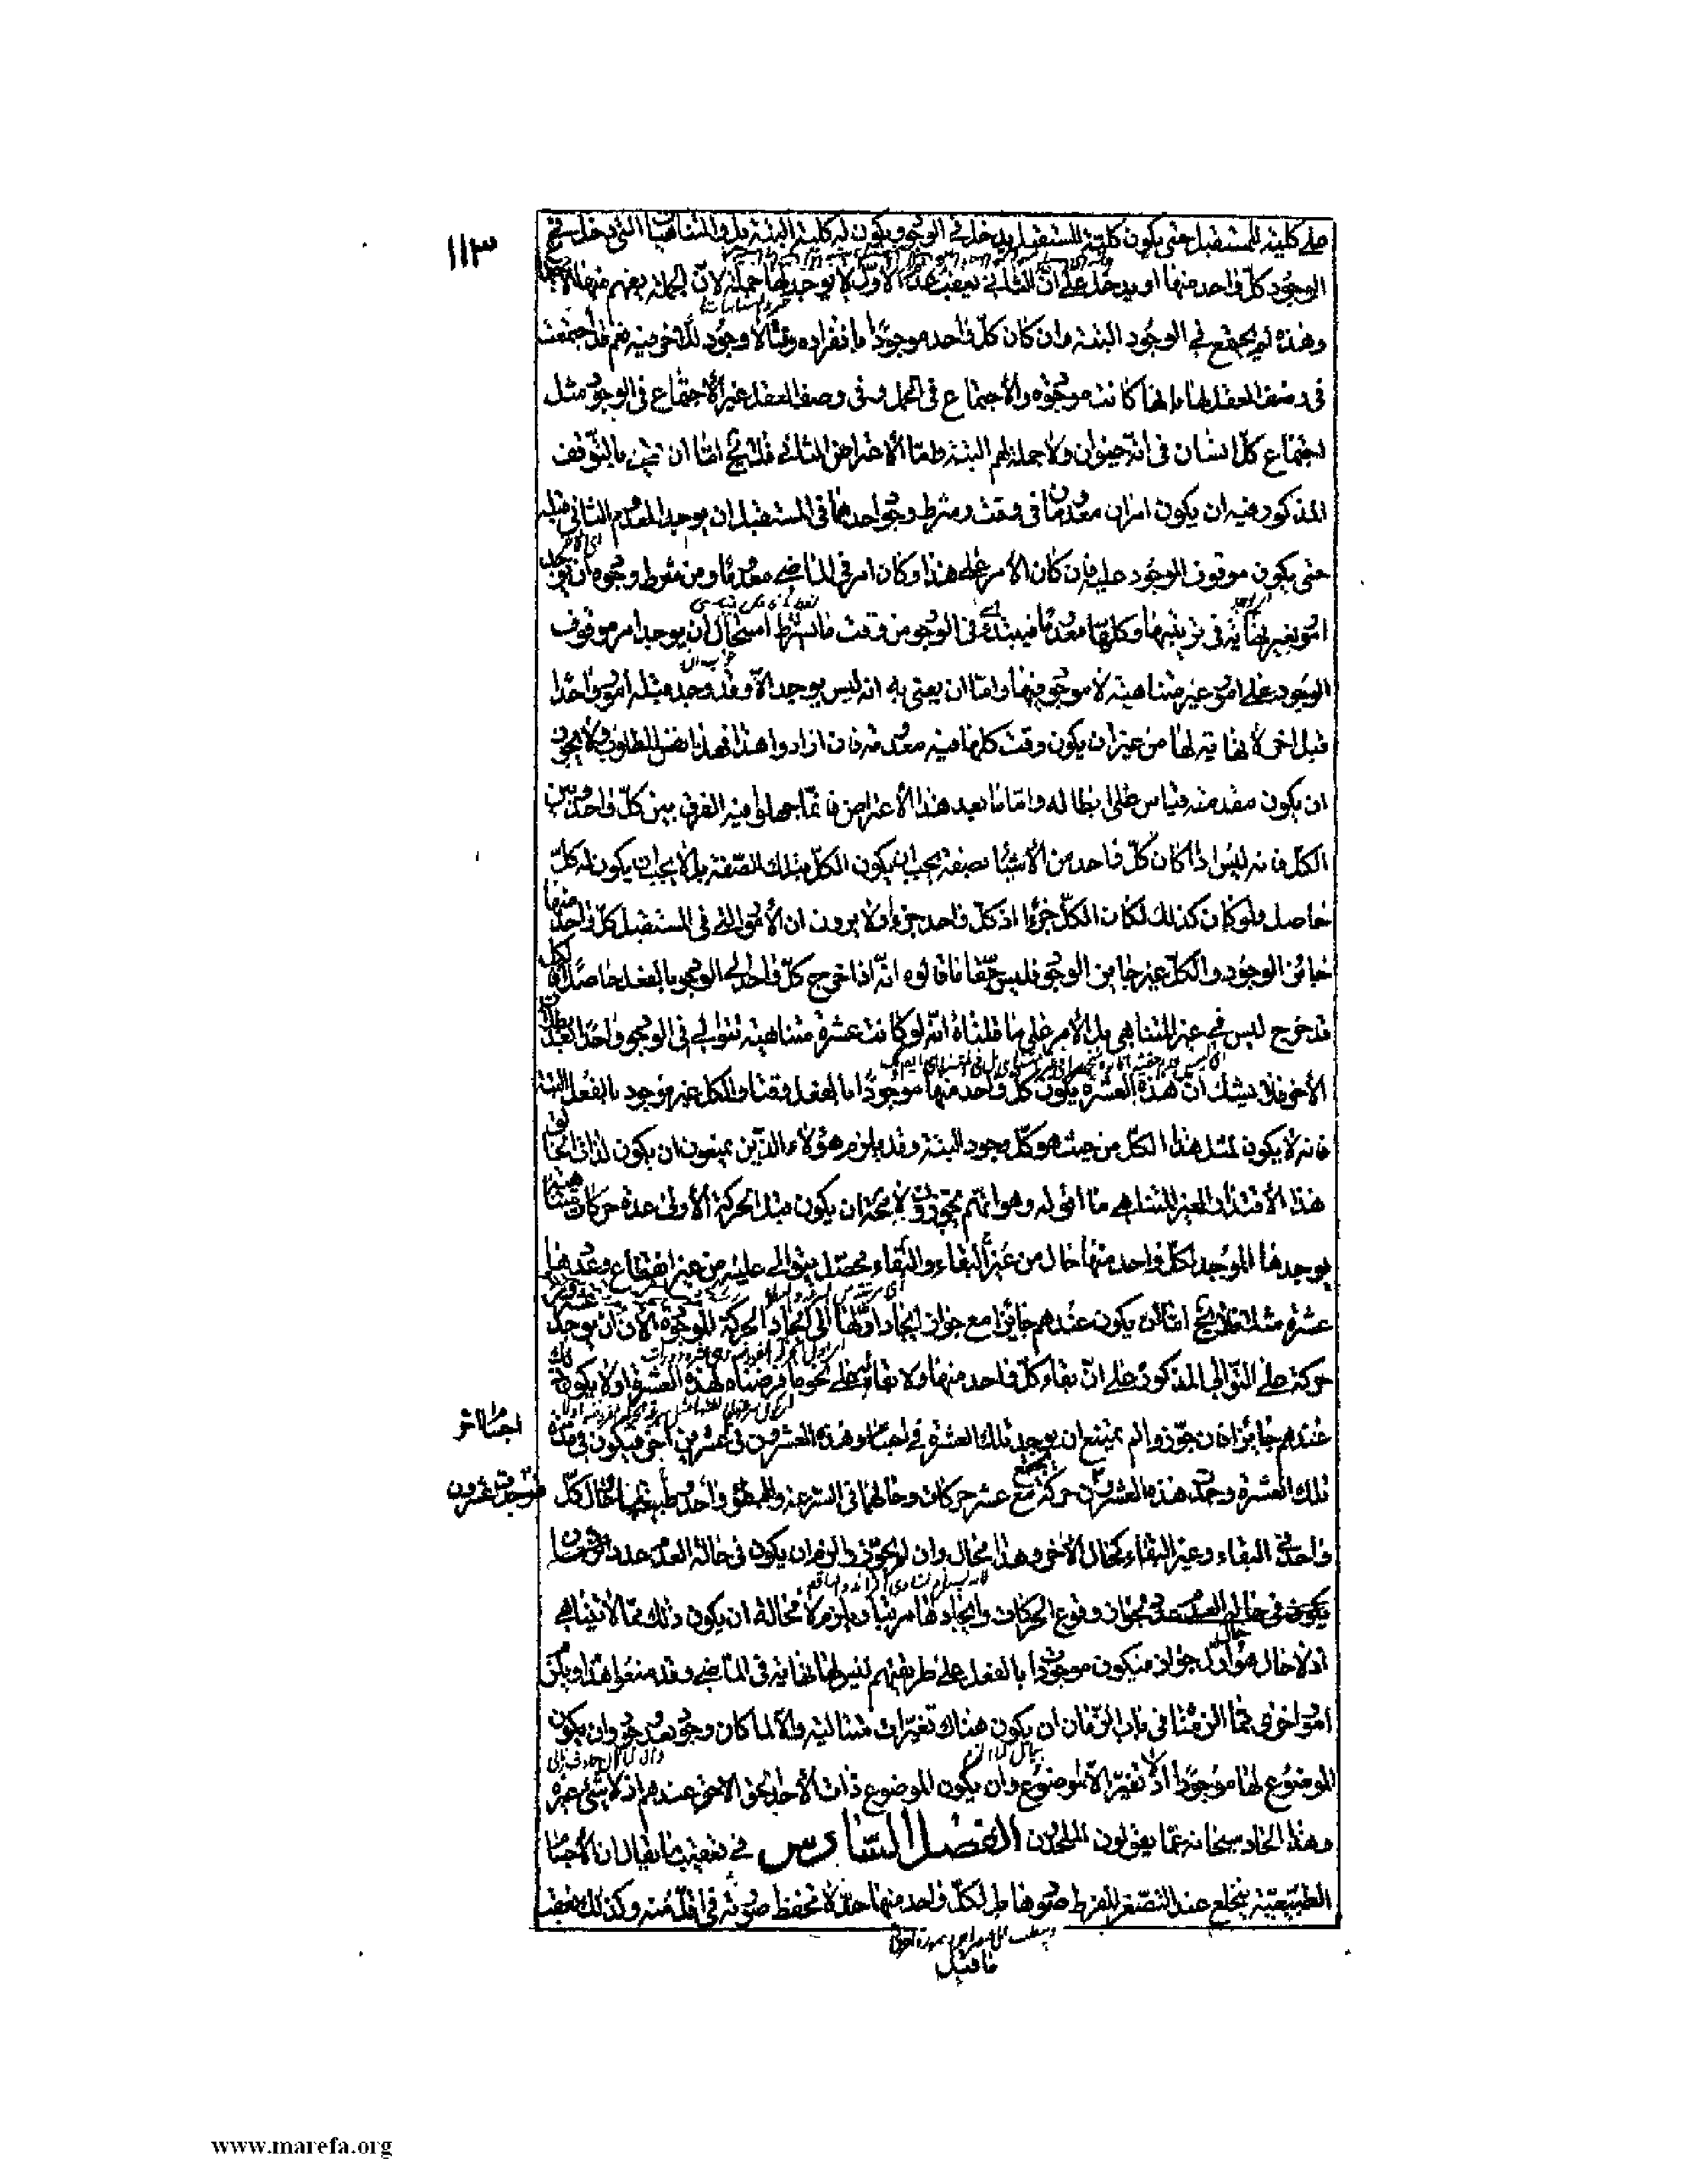 ١١٣
على كلية المستقبل حتى يكون كلية المستقبل يدخل في الوجود ويكون له كلية البتة بل والمتناهيات التي يدخل في
الوجود كل واحد منها او يدخل على ان الثاني يعقب عدم الاول لا يوجد لها جملة لان الجملة يفهم منها الاجتماع
وهذه لم يجتمع في الوجود البتة وان كان كل واحد موجودا بانفراده وقتا لا وجود للاخر فيه نعم قد اجتمعت
في وصف العقل لها بانها كانت موجودة والاجتماع في الحمل وفي وصف العقل غير الاجتماع في الوجود مثل
اجتماع كل انسان في انه حيوان ولا جملة لهم البتة واما الاعتراض الثاني فلنج اما ان يعنى بالتوقف
المذكور فيه ان يكون امران معدومان في وقت ومن شرط وجود احدهما في المستقبل ان يوجد المعدوم الثاني قبله
حتى يكون موقوف الوجود عليه فان كان الامر على هذا وكان امر في الماضي معدوما ومن شرط وجوده ان يوجد
امور بغير نهاية في ترتيبها وكلها معدوما فيبتدئ في الوجود من وقت ما اشترط استحال ان يوجد امر موقوف
الوجود على امور غير متناهية لا موجود فيها واما ان يعنى به انه ليس يوجد الا وقد وجد قبله امور واحدا
قبل اخر لا نهاية لها من غير ان يكون وقت كلها فيه معدومة فان ارادوا هذا فهذا نفس المطلوب ولا يجوز
ان يكون مقدمة قياس على ابطاله واما ما بعد هذا الاعتراض فانما جهلوا فيه الفرق بين كل واحد وبين
الكل فانه ليس اذا كان كل واحد من الاشياء بصفة يجب ان يكون الكل بتلك الصفة بل لا يجب ان يكون له كل
حاصل ولو كان كذلك لكان الكل جزءا اذ كل واحد جزء اولا يرون ان الامور التي في المستقبل كل واحد منها
جائز الوجود والكل غير جائز الوجود فليس حقا ما قالوه انه اذا خرج كل واحد الى الوجود بالفعل حاصلا فالكل
قد خرج ليس في غير المتناهي بل الامر على ما قلناه انه لو كانت عشرة متناهية تتوالى في الوجود واحدا بعد بطلان
الاخر فلن يشك ان هذه العشرة يكون كل واحد منها موجودا بالفعل وقتا والكل غير موجود بالفعل البتة
فانه لا يكون لمثل هذا الكل من حيث هو كل وجود البتة وقد يلزم هؤلاء الذين يمنعون ان يكون لذات الخالق
هذا الاقتدار الغير المتناهي ما اقوله وهو انهم يجوزون لا محة ان يكون قبل الحركة الاولى عدة حركات متناهية
يوجدها الموجد لكل واحد منها حال من غير البقاء والبقاء محصل يتوالى عليه من غير انقطاع وعددها
عشرة مثلا اما ان يكون عندهم جائزا مع جواز ايجاد اولها الى ايجاد الحركة الموجودة الان ان يوجد عشرون
حركة على التوالي المذكور على ان بقاء كل واحد منها ولا بقاءه على نحو ما فرضناه لهذه العشرة اولا يكون ذلك
عندهم جائزا فان جوزوا لم يمتنع ان يوجد تلك العشرة في اجسام وهذه العشرون في عشرين اخرى فيكون في مدة
اجسام اخر
تلك العشرة وجدت هذه العشرون حركة مع عشر حركات وحالهما في السرعة والبطؤ واحد وحال كل
فوجدت عشرون
واحد في البقاء وغير البقاء كحال الاخر وهذا محال وان لم يجوزوا لزم ان يكون في حالة العدم عدد
وقوع الحركات وايجادها مرتبا ويلزم لا محالة ان يكون ذلك مما لا يتناهى
اذ لا حال هو اول حال جواز فيكون موجودا بالفعل على طريقتهم ليس لها نهاية في الماضي وقد منعوا هذا ويلزم
امور اخرى مما الزمنا في باب الزمان ان يكون هناك تغيرات متتالية والا لما كان وجود بعد وجود وان يكون
الموضوع لها موجودا اذ لا تغير الا لموضوع وان يكون الموضوع ذات الاحد الحق الاخر عندهم اذ لا شيء غيره
وهذا الحاد سبحانه عما يقولون الملحدون الفصل السادس في تعقيب ما يقال ان الاجسام
الطبيعية ينخلع عند التصغر المفرط صورها بل لكل واحد منها حد لا يحفظ صورته في اقل منه وكذلك تعقيب
ما قيل
www.marefa.org